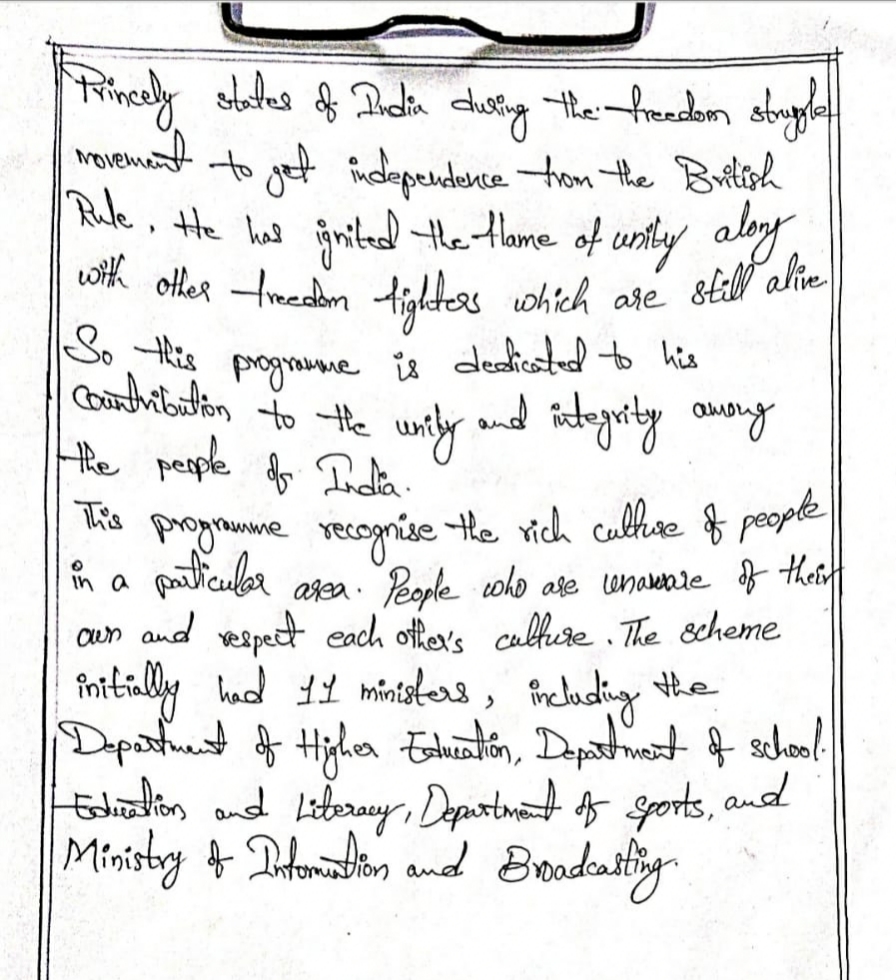 Princely states of India during the freedom struggle
movement to get independence from the British
Rule. He has ignited the flame of unity along
with other freedom fighters which are still alive.
So this programme is dedicated to his
Countribution to the unity and integrity among
the people of India.
This programme recognise the rich culture of people
in a particular area. People who are unaware of their
own and respect each other's culture. The scheme
initially had 11 ministers, including the
Department of Higher Education, Department of school
Education and Literacy, Department of sports, and
Ministry of Information and Broadcasting.